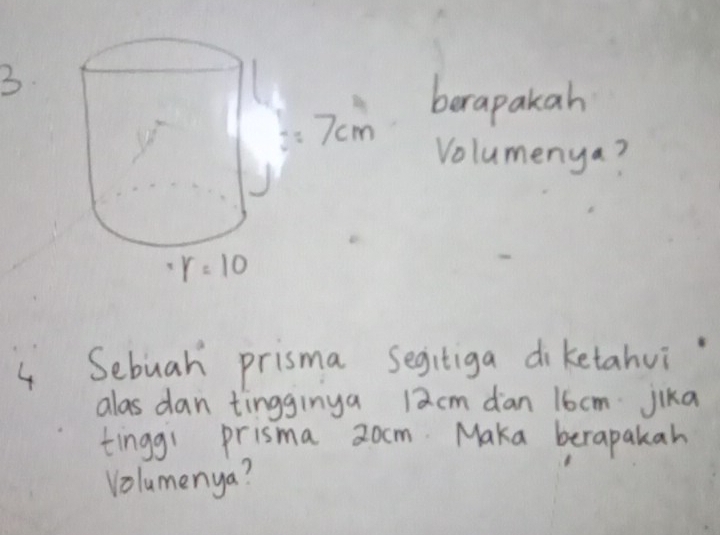 3.
= 7cm
berapakah
Volumenya?
r = 10
4 Sebuah prisma segitiga diketahui
alas dan tingginya 12cm dan 16cm. jika
tinggi prisma 20cm. Maka berapakah
Volumenya?